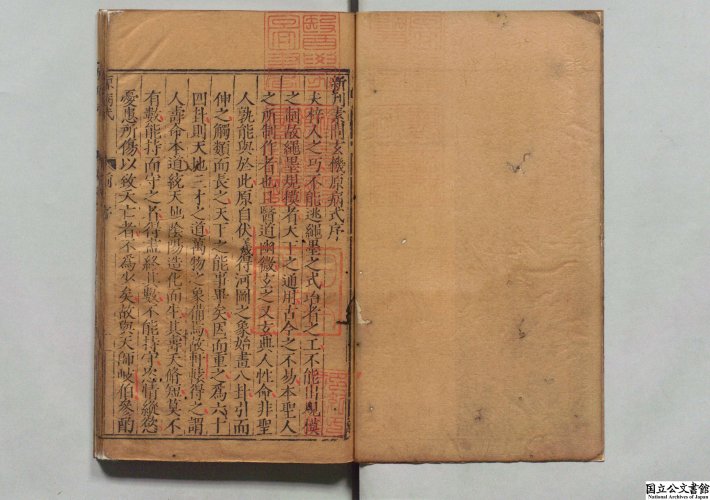 新刊素問玄機原病式序
夫梓人之巧不能逃繩墨之式冶者之工不能出規模
之制故繩墨規模者大下之通用古今之不易本聖人
之所制作者也且醫道幽微玄之又玄典人性命非聖
人孰能與於此原自伏羲得河圖之象始畫八卦引而
伸之觸類而長之天下之能事畢矣因而重之為六十
四卦則天地三才之道萬物之象備焉故軒岐得之謂
人壽命本道統天地陰陽造化而生其壽夭脩短莫不
有數能持而守之者得盡終其數不能持守以情縱慾
憂患所傷以致夭亡者不為少矣故與天師岐伯參酌
原病式
序
国立公文書館
National Archives of Japan